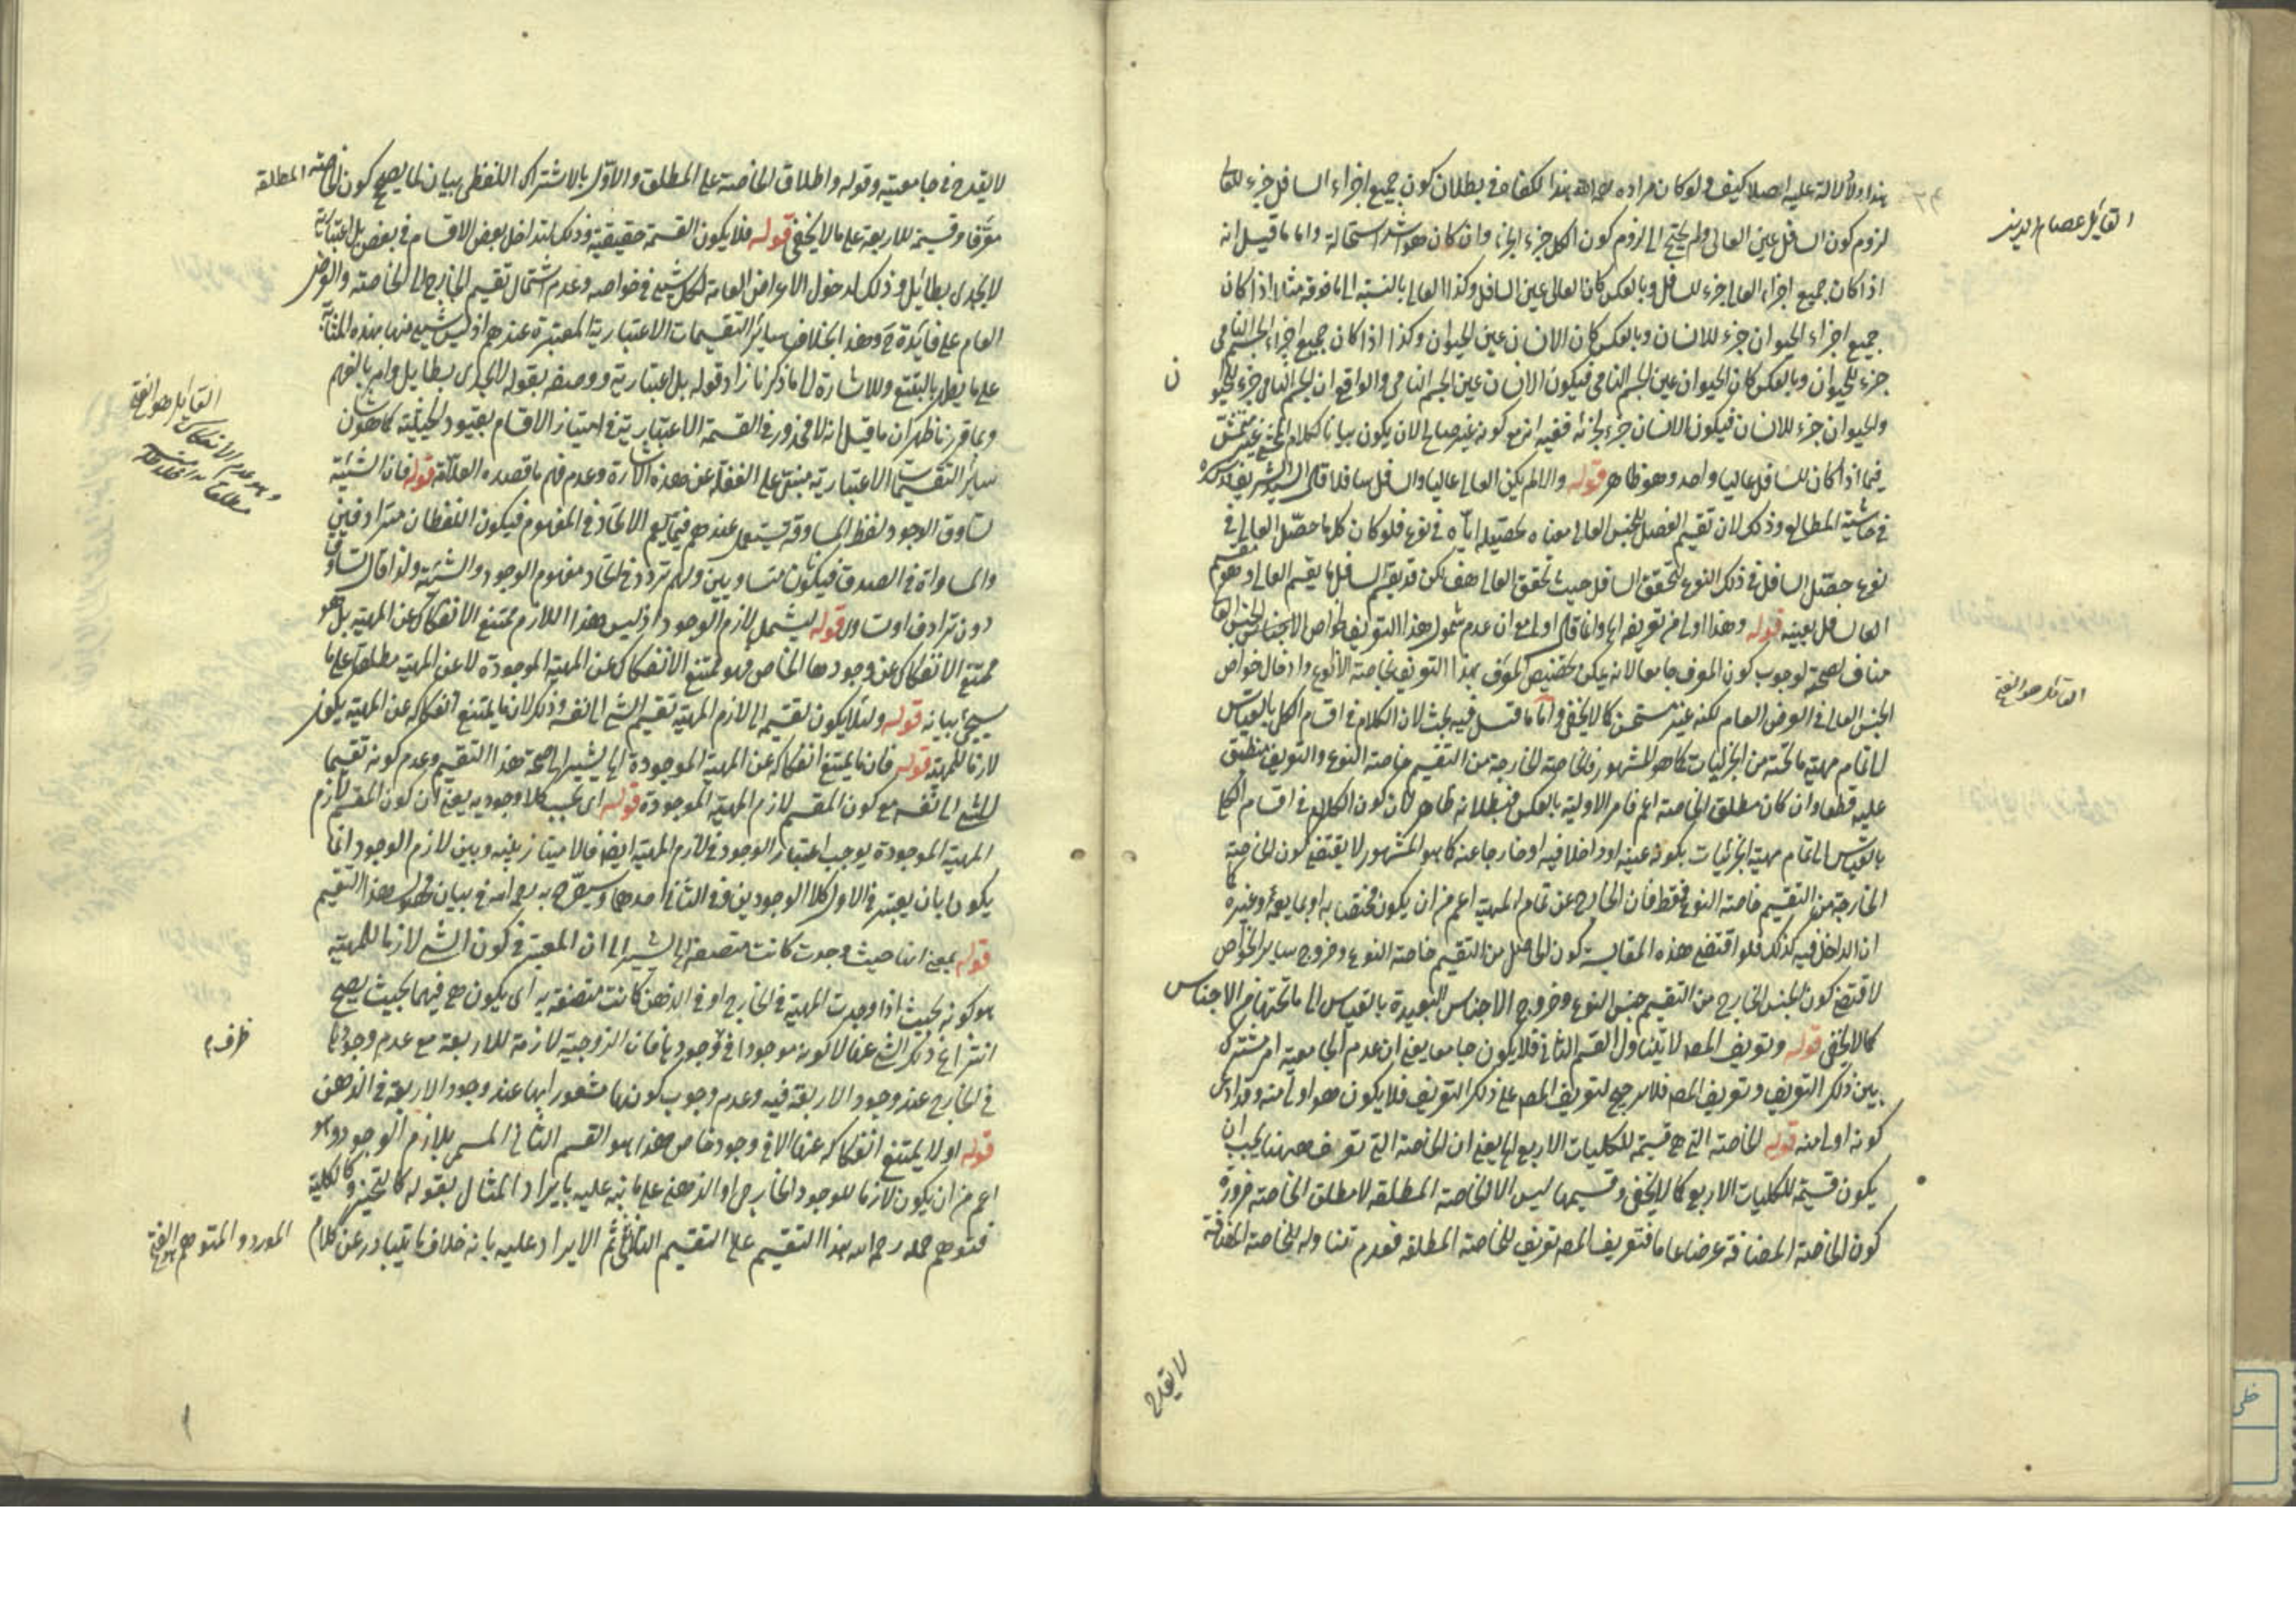 هذا ولا دلالة عليه اصلا كيف ولو كان مراده رحمه الله هذا لكفاه في بطلان كون جميع اجزاء السافل جزء للعالي
لزوم كون السافل عين العالي ولم يحتج الى لزوم كون الكل جزء الجزء وان كان هو اشد استحالة واما ما قيل انه
اذا كان جميع اجزاء العالي جزء للسافل وبالعكس كان العالي عين السافل وكذا العالي بالنسبة الى ما فوقه مثلا اذا كان
جميع اجزاء الحيوان جزء للانسان وبالعكس كان الانسان عين الحيوان وكذا اذا كان جميع اجزاء الجسم النامي
جزء للحيوان وبالعكس كان الحيوان عين الجسم النامي فيكون الانسان عين الجسم النامي والواقع ان الجسم النامي جزء للحيوان
والحيوان جزء للانسان فيكون الانسان جزء لجزئه ففيه انه مع كونه غير صالح لان يكون بيانا لكلام المحشي غير متمش
فيما اذا كان للسافل عاليا واحد وهو ظاهر قوله والا لم يكن العالي عاليا والسافل سافلا قال السيد الشريف قدس سره
في حاشية المطالع وذلك لان تقسيم الفصل للجنس العالي معناه تحصيله اياه في نوع فلو كان كلما حصل العالي في
نوع حصل السافل في ذلك النوع لتحقق السافل حيث تحقق العالي هف لكن قد يقسم السافل ما يقسم العالي او هو تقسيم
العالي السافل بعينه قوله وهذا اولى من تعريفه الخ وانما قال اولى مع ان عدم شمول هذا التعريف لخواص الاجناس لجنس العالي
مناف لصحته لوجوب كون المعرف جامعا لانه يمكن تخصيص المعرف بهذا التعريف بخاصة الانواع وادخال خواص
الجنس العالي في العرض العام لكنه غير مستحسن كما لا يخفى واما ما قيل فيه بحث لان الكلام في اقسام الكلي بالقياس
الى تمام مهية ما تحته من الجزئيات كما هو المشهور فالخاصة الخارجة من التقسيم خاصة النوع والتعريف منطبق
عليه قطعا وان كان مطلق الخاصة اعم فامر الاولوية بالعكس فبطلانه ظاهر لان كون الكلام في اقسام الكلي
بالقياس الى تمام مهية الجزئيات بكونه عينه او داخلا فيه او خارجا عنه كما هو المشهور لا يقتضي كون الخاصة
الخارجة من التقسيم خاصة النوع فقط فان الخارج عن تمام المهية اعم من ان يكون مختصا به او بما يعمه وغيره كما
ان الداخل فيه كذلك فلو اقتضى هذه المقايسة كون الحاصل من التقسيم خاصة النوع وخروج سائر الخواص
لاقتضى كون الجنس الخارج من التقسيم جنس النوع وخروج الاجناس البعيدة بالقياس الى ما تحتها من الاجناس
كما لا يخفى قوله وتعريف المص لا يتناول القسم الثاني فلا يكون جامعا يعني ان عدم الجامعية امر مشترك
بين ذلك التعريف وتعريف المص فلا مرجح لتعريف المص على ذلك التعريف فلا يكون هو اولى منه وقد ادعى
كونه اولى منه قوله الخاصة التي هي قسيمة للكليات الاربع الخ يعني ان الخاصة التي تعرف ههنا يجب ان
يكون قسيمة للكليات الاربع كما لا يخفى وقسيمها ليس الا الخاصة المطلقة لا مطلق الخاصة ضرورة
كون الخاصة المضافة عرضا عاما فتعريف المص تعريف للخاصة المطلقة فعدم تناوله للخاصة المضافة
القايل عصام الدين
القائل هو الفتى
ن
لا يقدح
لا يقدح في جامعيته وقوله واطلاق الخاصة على المطلق والاول بالاشتراك اللفظي بيان لما يصح كون الخاصة المطلقة
معرفا وقسيمة للاربعة على ما لا يخفى قوله فلا يكون القسمة حقيقية وذلك لتداخل بعض الاقسام في بعض بل اعتبارية
لا يجدي بطائل وذلك لدخول الاعراض العامة لكل شيء في خواصه وعدم اشتمال تقسيم الخارج الى الخاصة والعرض
العام على فائدة ح وهذا بخلاف سائر التقسيمات الاعتبارية المعتبرة عندهم اذ ليس شيء منها بهذه المثابة
على ما يظهر بالتتبع وللاشارة الى ما ذكرنا زاد قوله بل اعتبارية ووصفه بقوله لا يجدي بطايل وامر بالفهم
وبما قررنا ظهر ان ما قيل انه لا محذور في القسمة الاعتبارية في امتياز الاقسام بقيود الحيثية كما هو شان
سائر التقسيمات الاعتبارية مبني على الغفلة عن هذه الاشارة وعدم فهم ما قصده العلامة قوله فان الشيئية
تساوق الوجود لفظ المساوقة يستعمل عندهم فيما يعم الاتحاد في المفهوم فيكون اللفظان مترادفين
والمساواة في الصدق فيكون متساويين ولهم تردد في اتحاد مفهوم الوجود والشيئية ولذا قال تساوق
دون ترادف او تساوي قوله ليشمل لازم الوجود اذ ليس هذا اللازم ممتنع الانفكاك عن المهية بل هو
ممتنع الانفكاك عن وجودها الخاص فهو ممتنع الانفكاك عن المهية الموجودة لا عن المهية مطلقا على ما
سيجيء بيانه قوله ولئلا يكون تقسيمه الى لازم المهية تقسيم الشيء الى نفسه وذلك لان ما يمتنع انفكاكه عن المهية يكون
لازما للمهية قوله فان ما يمتنع انفكاكه عن المهية الموجودة الخ يشير الى صحة هذا التقسيم وعدم كونه تقسيما
للشيء الى نفسه مع كون المقسم لازم المهية الموجودة قوله اي بحسب كلا وجوديه يعني ان كون المقسم لازم
المهية الموجودة يوجب اعتبار الوجود في لازم المهية ايضا فالامتياز بينه وبين لازم الوجود انما
يكون بان يعتبر في الاول كلا الوجودين وفي الثاني احدهما وسيصرح به رحمه الله في بيان محصول هذا التقسيم
قوله بمعنى انها حيث وجدت كانت متصفة الخ يشير الى ان المعتبر في كون الشيء لازما للمهية
هو كونه بحيث اذا وجدت المهية في الخارج او في الذهن كانت متصفة به اي يكون هي فيهما بحيث يصح
انتزاع ذلك الشيء عنها لا كونه موجودا في وجودها فان الزوجية لازمة للاربعة مع عدم وجودها
في الخارج عند وجود الاربعة فيه وعدم وجوب كونها مشعورا بها عند وجود الاربعة في الذهن
قوله او لا يمتنع انفكاكه عنها الا في وجود خاص هذا هو القسم الثاني المسمى بلازم الوجود وهو
اعم من ان يكون لازما للوجود الخارجي او الذهني على ما نبه عليه بايراد المثال بقوله كالتحيز وكالكلية
فتوهم حمله رحمه الله هذا التقسيم على التقسيم الثلاثي ثم الايراد عليه بانه خلاف ما يتبادر عن كلام
القايل هو الفتى
وهو عدم الانفكاك
مطلقا
ظرف
المورد والمتوهم هو الفتى